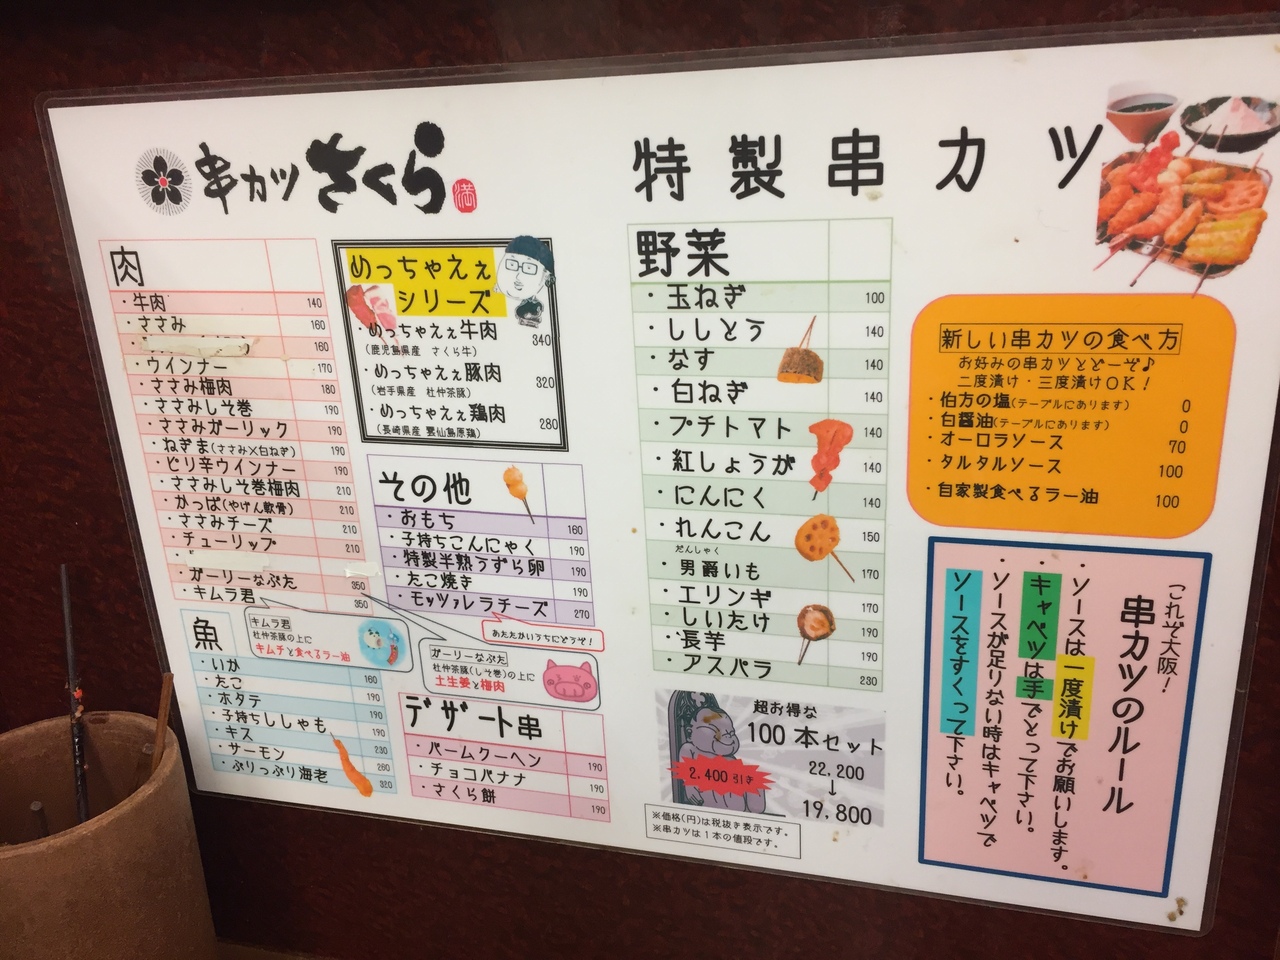 串カツ さくら 満
特製串カツ
肉
・牛肉 140
・ささみ 160
160
・ウインナー 170
・ささみ梅肉 180
・ささみしそ巻 190
・ささみガーリック 190
・ねぎま(ささみ×白ねぎ) 190
・ピリ辛ウインナー 190
・ささみしそ巻梅肉 210
・かっぱ(やげん軟骨) 210
・ささみチーズ 210
・チューリップ 210
・ガーリーなぶた 350
・キムラ君 350
キムラ君
杜仲茶豚の上に
キムチと食べるラー油
魚
・いか 160
・たこ 190
・ホタテ 190
・子持ちししゃも 190
・キス 230
・サーモン 260
・ぷりっぷり海老 320
めっちゃえぇ
シリーズ
・めっちゃえぇ牛肉 340
(鹿児島県産 さくら牛)
・めっちゃえぇ豚肉 320
(岩手県産 杜仲茶豚)
・めっちゃえぇ鶏肉 280
(長崎県産 雲仙島原鶏)
その他
・おもち 160
・子持ちこんにゃく 190
・特製半熟うずら卵 190
・たこ焼き 190
・モッツァレラチーズ 270
あたたかいうちにどうぞ!
ガーリーなぶた
杜仲茶豚(しそ巻)の上に
土生姜と梅肉
デザート串
・バームクーヘン 190
・チョコバナナ 190
・さくら餅 190
野菜
・玉ねぎ 100
・ししとう 140
・なす 140
・白ねぎ 140
・プチトマト 140
・紅しょうが 140
・にんにく 140
・れんこん 150
だんしゃく
・男爵いも 170
・エリンギ 170
・しいたけ 190
・長芋 190
・アスパラ 230
超お得な
100本セット
22,200
↓
19,800
2,400引き
※価格(円)は税抜き表示です。
※串カツは1本の値段です。
新しい串カツの食べ方
お好みの串カツとどーぞ♪
二度漬け・三度漬けOK!
・伯方の塩(テーブルにあります) 0
・白醤油(テーブルにあります) 0
・オーロラソース 70
・タルタルソース 100
・自家製食べるラー油 100
これぞ大阪!
串カツのルール
・ソースは一度漬けでお願いします。
・キャベツは手でとって下さい。
・ソースが足りない時はキャベツで
ソースをすくって下さい。